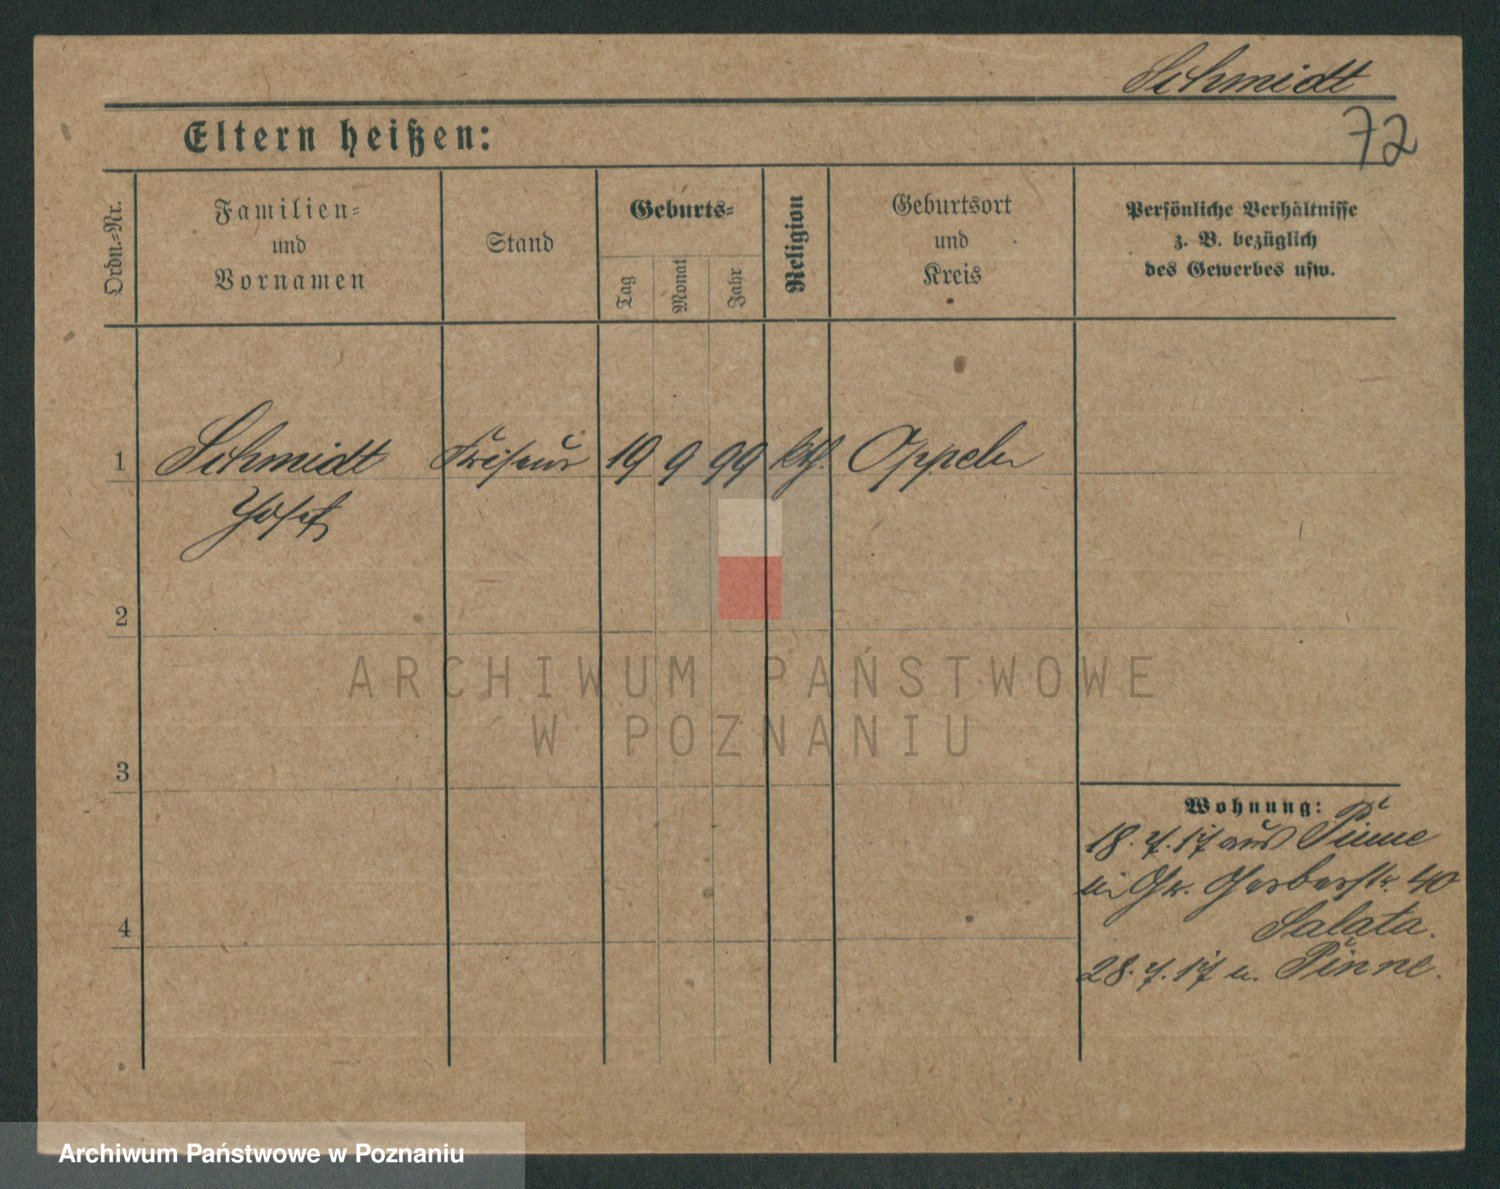 Schmidt
72
Eltern heißen:
Ordn.=Nr.
Familien=
und
Vornamen
Stand
Geburts=
Tag
Monat
Jahr
Religion
Geburtsort
und
Kreis
Persönliche Verhältnisse
z. B. bezüglich
des Gewerbes usw.
1
Schmidt Friseur 19 9 99 kth. Oppeln
Josef
2
ARCHIWUM PAŃSTWOWE
W POZNANIU
3
Wohnung:
18. 7. 17 aus Pinne
in Gr. Gerberstr. 40
Salata.
4
28. 7. 17 n. Pinne.
Archiwum Państwowe w Poznaniu